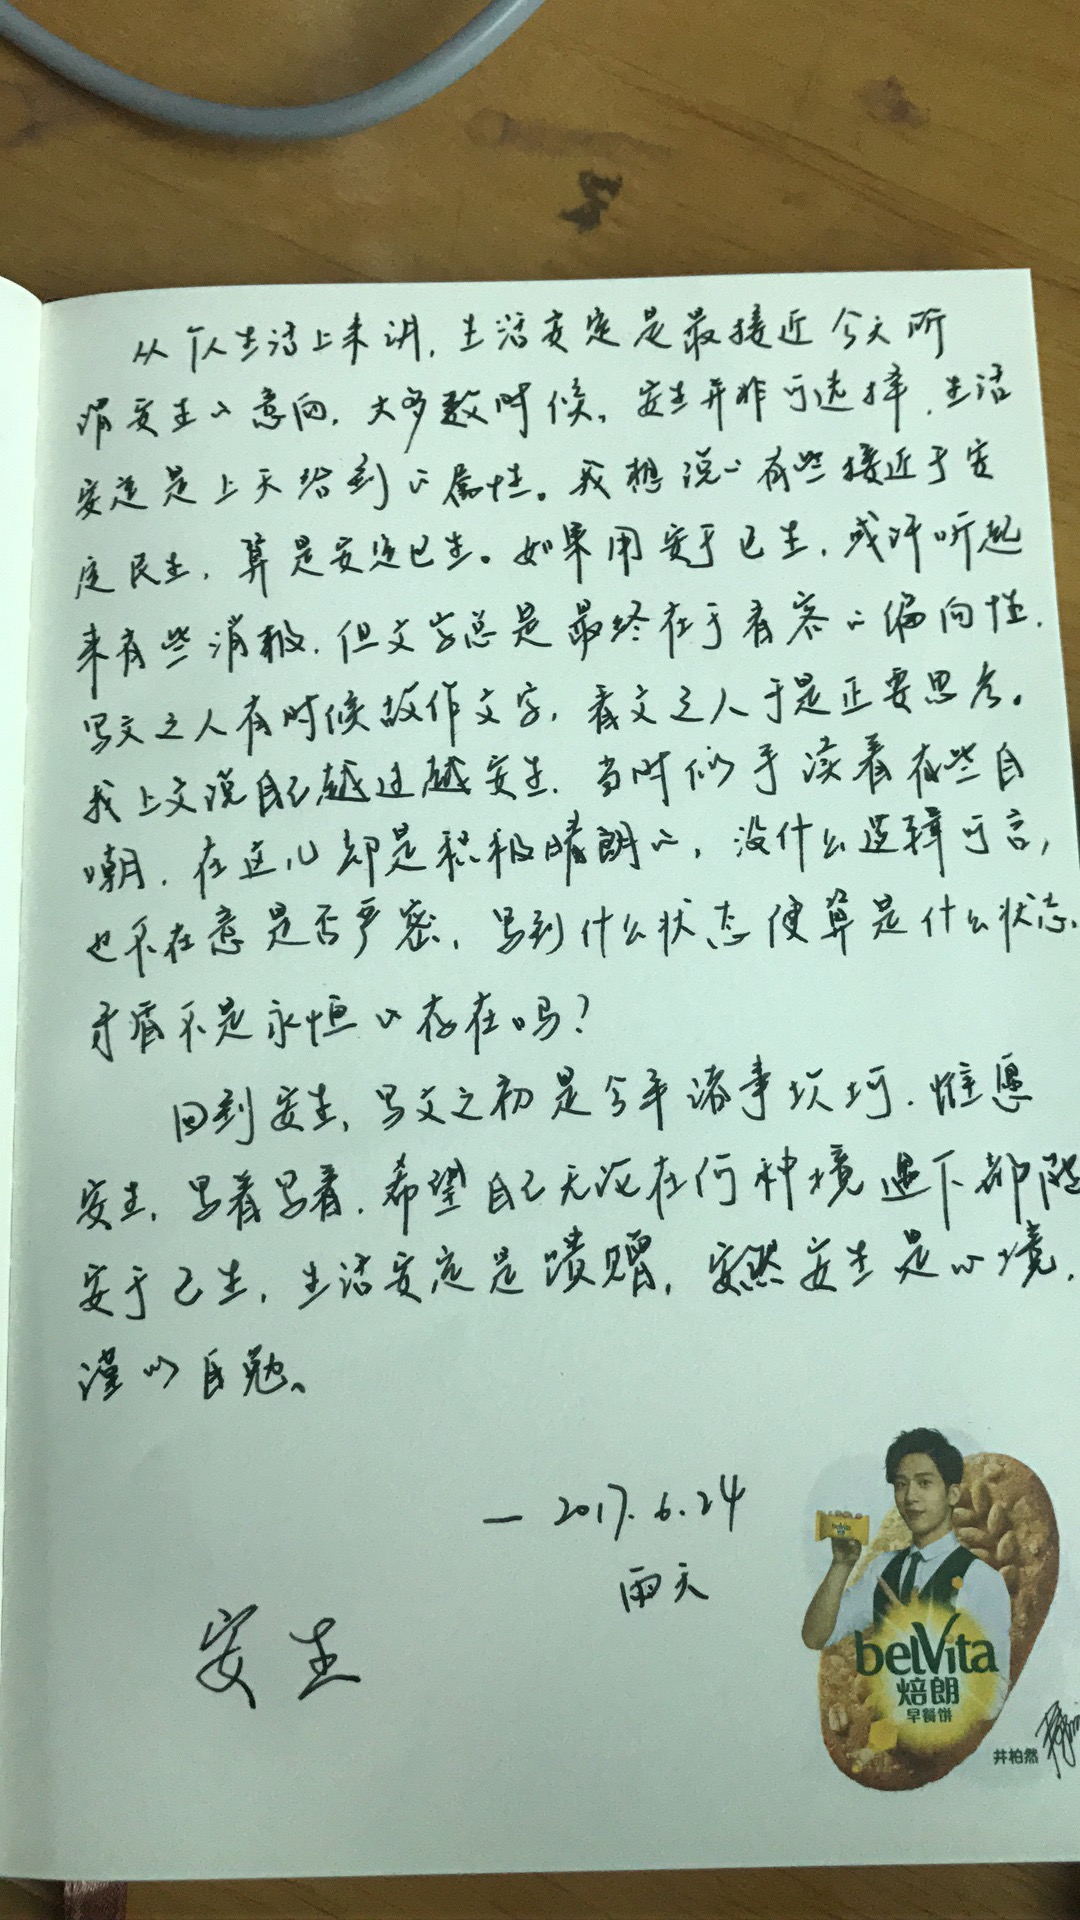 从个人生活上来讲，生活安定是最接近今天所
谓安生的意向，大多数时候，安生并非可选择，生活
安定是上天给到的属性。我想说的有些接近于安
定民生，算是安定已生。如果用安于已生，或许听起
来有些消极，但文字总是最终在于看客的偏向性，
写文之人有时候故作文字，看文之人于是正要思考。
我上文说自己越过越安生，当时似乎读着有些自
嘲，在这儿却是积极晴朗的，没什么逻辑可言，
也不在意是否严密，写到什么状态便算是什么状态，
矛盾不是永恒的存在吗？
回到安生，写文之初是今年诸事坎坷，惟愿
安生，写着写着，希望自己无论在何种境遇下都能
安于已生，生活安定是馈赠，安然安生是心境，
谨以自勉。
— 2017.6.24
雨天
安生
belVita
焙朗
早餐饼
井柏然